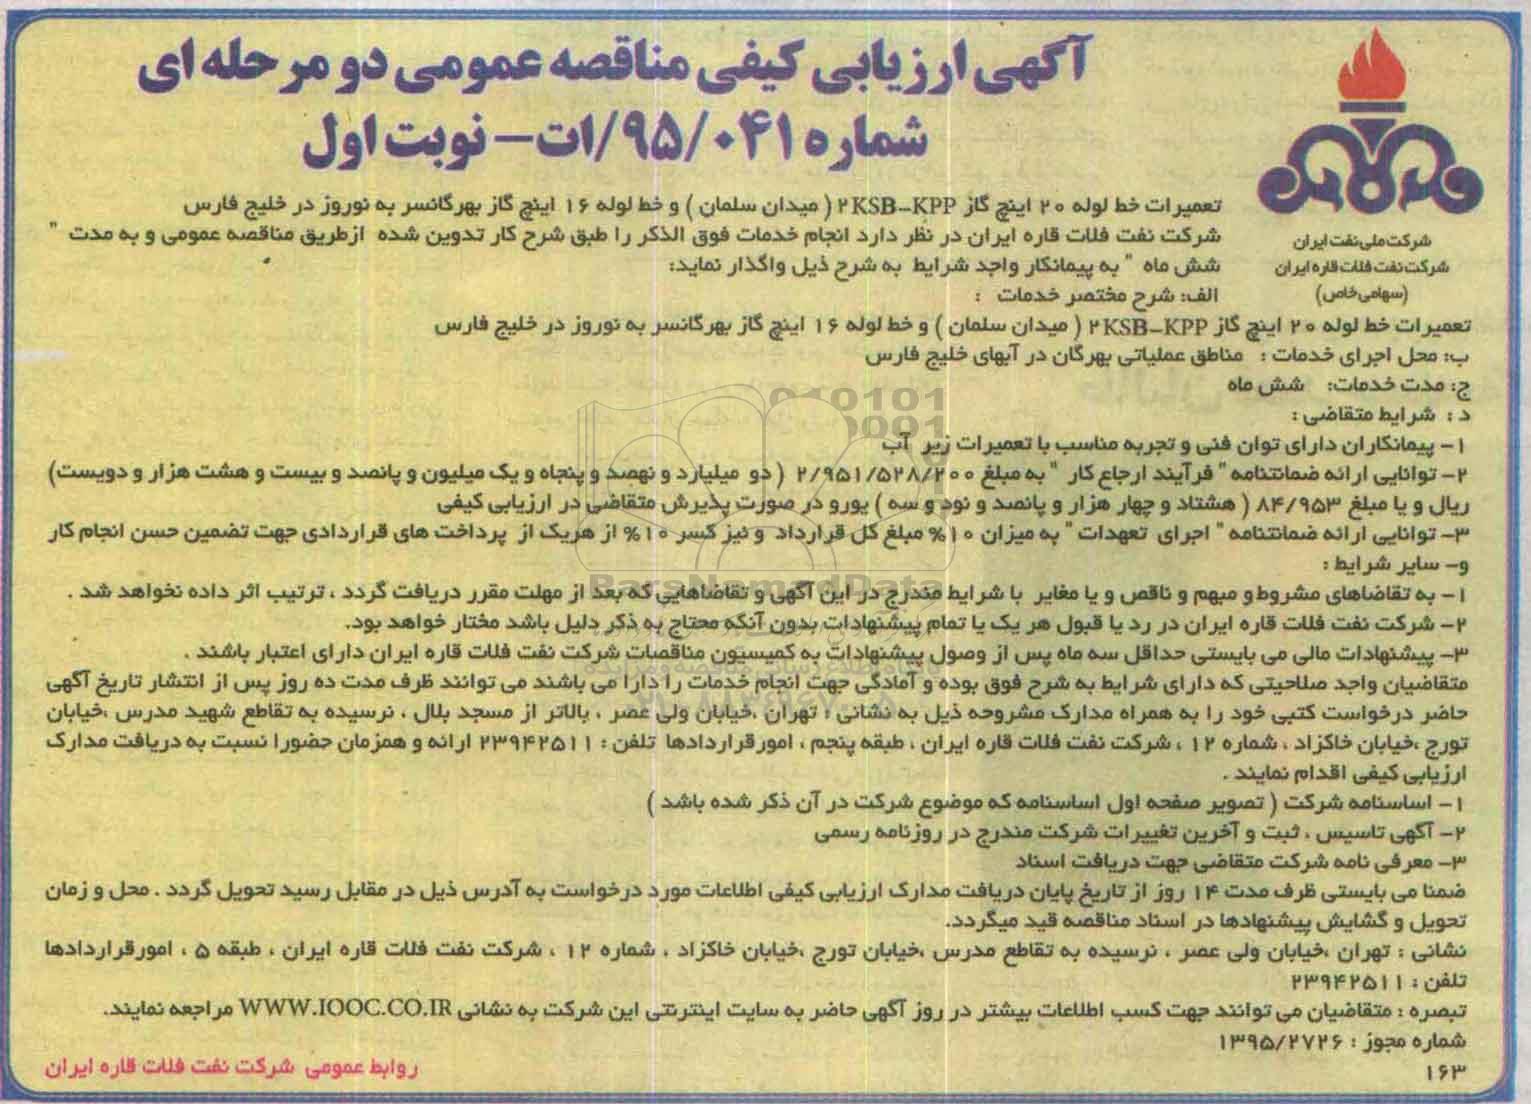 آگهی ارزیابی کیفی مناقصه عمومی دو مرحله ای
شماره ۹۵/۰۴۱/ات – نوبت اول
شرکت ملی نفت ایران
شرکت نفت فلات قاره ایران
(سهامی خاص)
تعمیرات خط لوله ۲۰ اینچ گاز ۲KSB-KPP ( میدان سلمان ) و خط لوله ۱۶ اینچ گاز بهرگانسر به نوروز در خلیج فارس
شرکت نفت فلات قاره ایران در نظر دارد انجام خدمات فوق الذکر را طبق شرح کار تدوین شده ازطریق مناقصه عمومی و به مدت "
شش ماه " به پیمانکار واجد شرایط به شرح ذیل واگذار نماید:
الف: شرح مختصر خدمات :
تعمیرات خط لوله ۲۰ اینچ گاز ۲KSB-KPP ( میدان سلمان ) و خط لوله ۱۶ اینچ گاز بهرگانسر به نوروز در خلیج فارس
ب: محل اجرای خدمات : مناطق عملیاتی بهرگان در آبهای خلیج فارس
ج: مدت خدمات: شش ماه
د : شرایط متقاضی :
۱- پیمانکاران دارای توان فنی و تجربه مناسب با تعمیرات زیر آب
۲- توانایی ارائه ضمانتنامه " فرآیند ارجاع کار " به مبلغ ۲/۹۵۱/۵۲۸/۲۰۰ ( دو میلیارد و نهصد و پنجاه و یک میلیون و پانصد و بیست و هشت هزار و دویست)
ریال و یا مبلغ ۸۴/۹۵۳ ( هشتاد و چهار هزار و پانصد و نود و سه ) یورو در صورت پذیرش متقاضی در ارزیابی کیفی
۳- توانایی ارائه ضمانتنامه " اجرای تعهدات " به میزان ۱۰% مبلغ کل قرارداد و نیز کسر ۱۰% از هریک از پرداخت های قراردادی جهت تضمین حسن انجام کار
و- سایر شرایط :
۱- به تقاضاهای مشروط و مبهم و ناقص و یا مغایر با شرایط مندرج در این آگهی و تقاضاهایی که بعد از مهلت مقرر دریافت گردد ، ترتیب اثر داده نخواهد شد .
۲- شرکت نفت فلات قاره ایران در رد یا قبول هر یک یا تمام پیشنهادات بدون آنکه محتاج به ذکر دلیل باشد مختار خواهد بود.
۳- پیشنهادات مالی می بایستی حداقل سه ماه پس از وصول پیشنهادات به کمیسیون مناقصات شرکت نفت فلات قاره ایران دارای اعتبار باشند .
متقاضیان واجد صلاحیتی که دارای شرایط به شرح فوق بوده و آمادگی جهت انجام خدمات را دارا می باشند می توانند ظرف مدت ده روز پس از انتشار تاریخ آگهی
حاضر درخواست کتبی خود را به همراه مدارک مشروحه ذیل به نشانی : تهران ،خیابان ولی عصر ، بالاتر از مسجد بلال ، نرسیده به تقاطع شهید مدرس ،خیابان
تورج ،خیابان خاکزاد ، شماره ۱۲ ، شرکت نفت فلات قاره ایران ، طبقه پنجم ، امورقراردادها تلفن : ۲۳۹۴۲۵۱۱ ارائه و همزمان حضورا نسبت به دریافت مدارک
ارزیابی کیفی اقدام نمایند .
۱- اساسنامه شرکت ( تصویر صفحه اول اساسنامه که موضوع شرکت در آن ذکر شده باشد )
۲- آگهی تاسیس ، ثبت و آخرین تغییرات شرکت مندرج در روزنامه رسمی
۳- معرفی نامه شرکت متقاضی جهت دریافت اسناد
ضمنا می بایستی ظرف مدت ۱۴ روز از تاریخ پایان دریافت مدارک ارزیابی کیفی اطلاعات مورد درخواست به آدرس ذیل در مقابل رسید تحویل گردد . محل و زمان
تحویل و گشایش پیشنهادها در اسناد مناقصه قید میگردد.
نشانی : تهران ،خیابان ولی عصر ، نرسیده به تقاطع مدرس ،خیابان تورج ،خیابان خاکزاد ، شماره ۱۲ ، شرکت نفت فلات قاره ایران ، طبقه ۵ ، امورقراردادها
تلفن : ۲۳۹۴۲۵۱۱
تبصره : متقاضیان می توانند جهت کسب اطلاعات بیشتر در روز آگهی حاضر به سایت اینترنتی این شرکت به نشانی WWW.IOOC.CO.IR مراجعه نمایند.
شماره مجوز : ۱۳۹۵/۲۷۲۶
۱۶۳
روابط عمومی شرکت نفت فلات قاره ایران
ParsNamadData